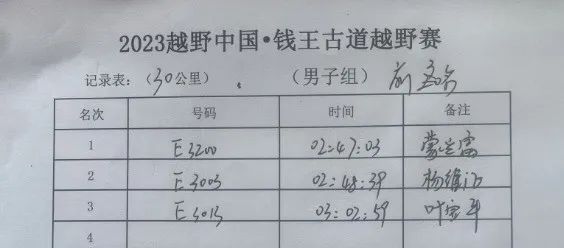 2023越野中国•钱王古道越野赛
记录表：（30公里）（男子组）前
名次 号码 时间 备注
1 E3200 02:47:03
2 E3003 02:48:39 杨维
3 E3013 03:02:59 叶宝平
4